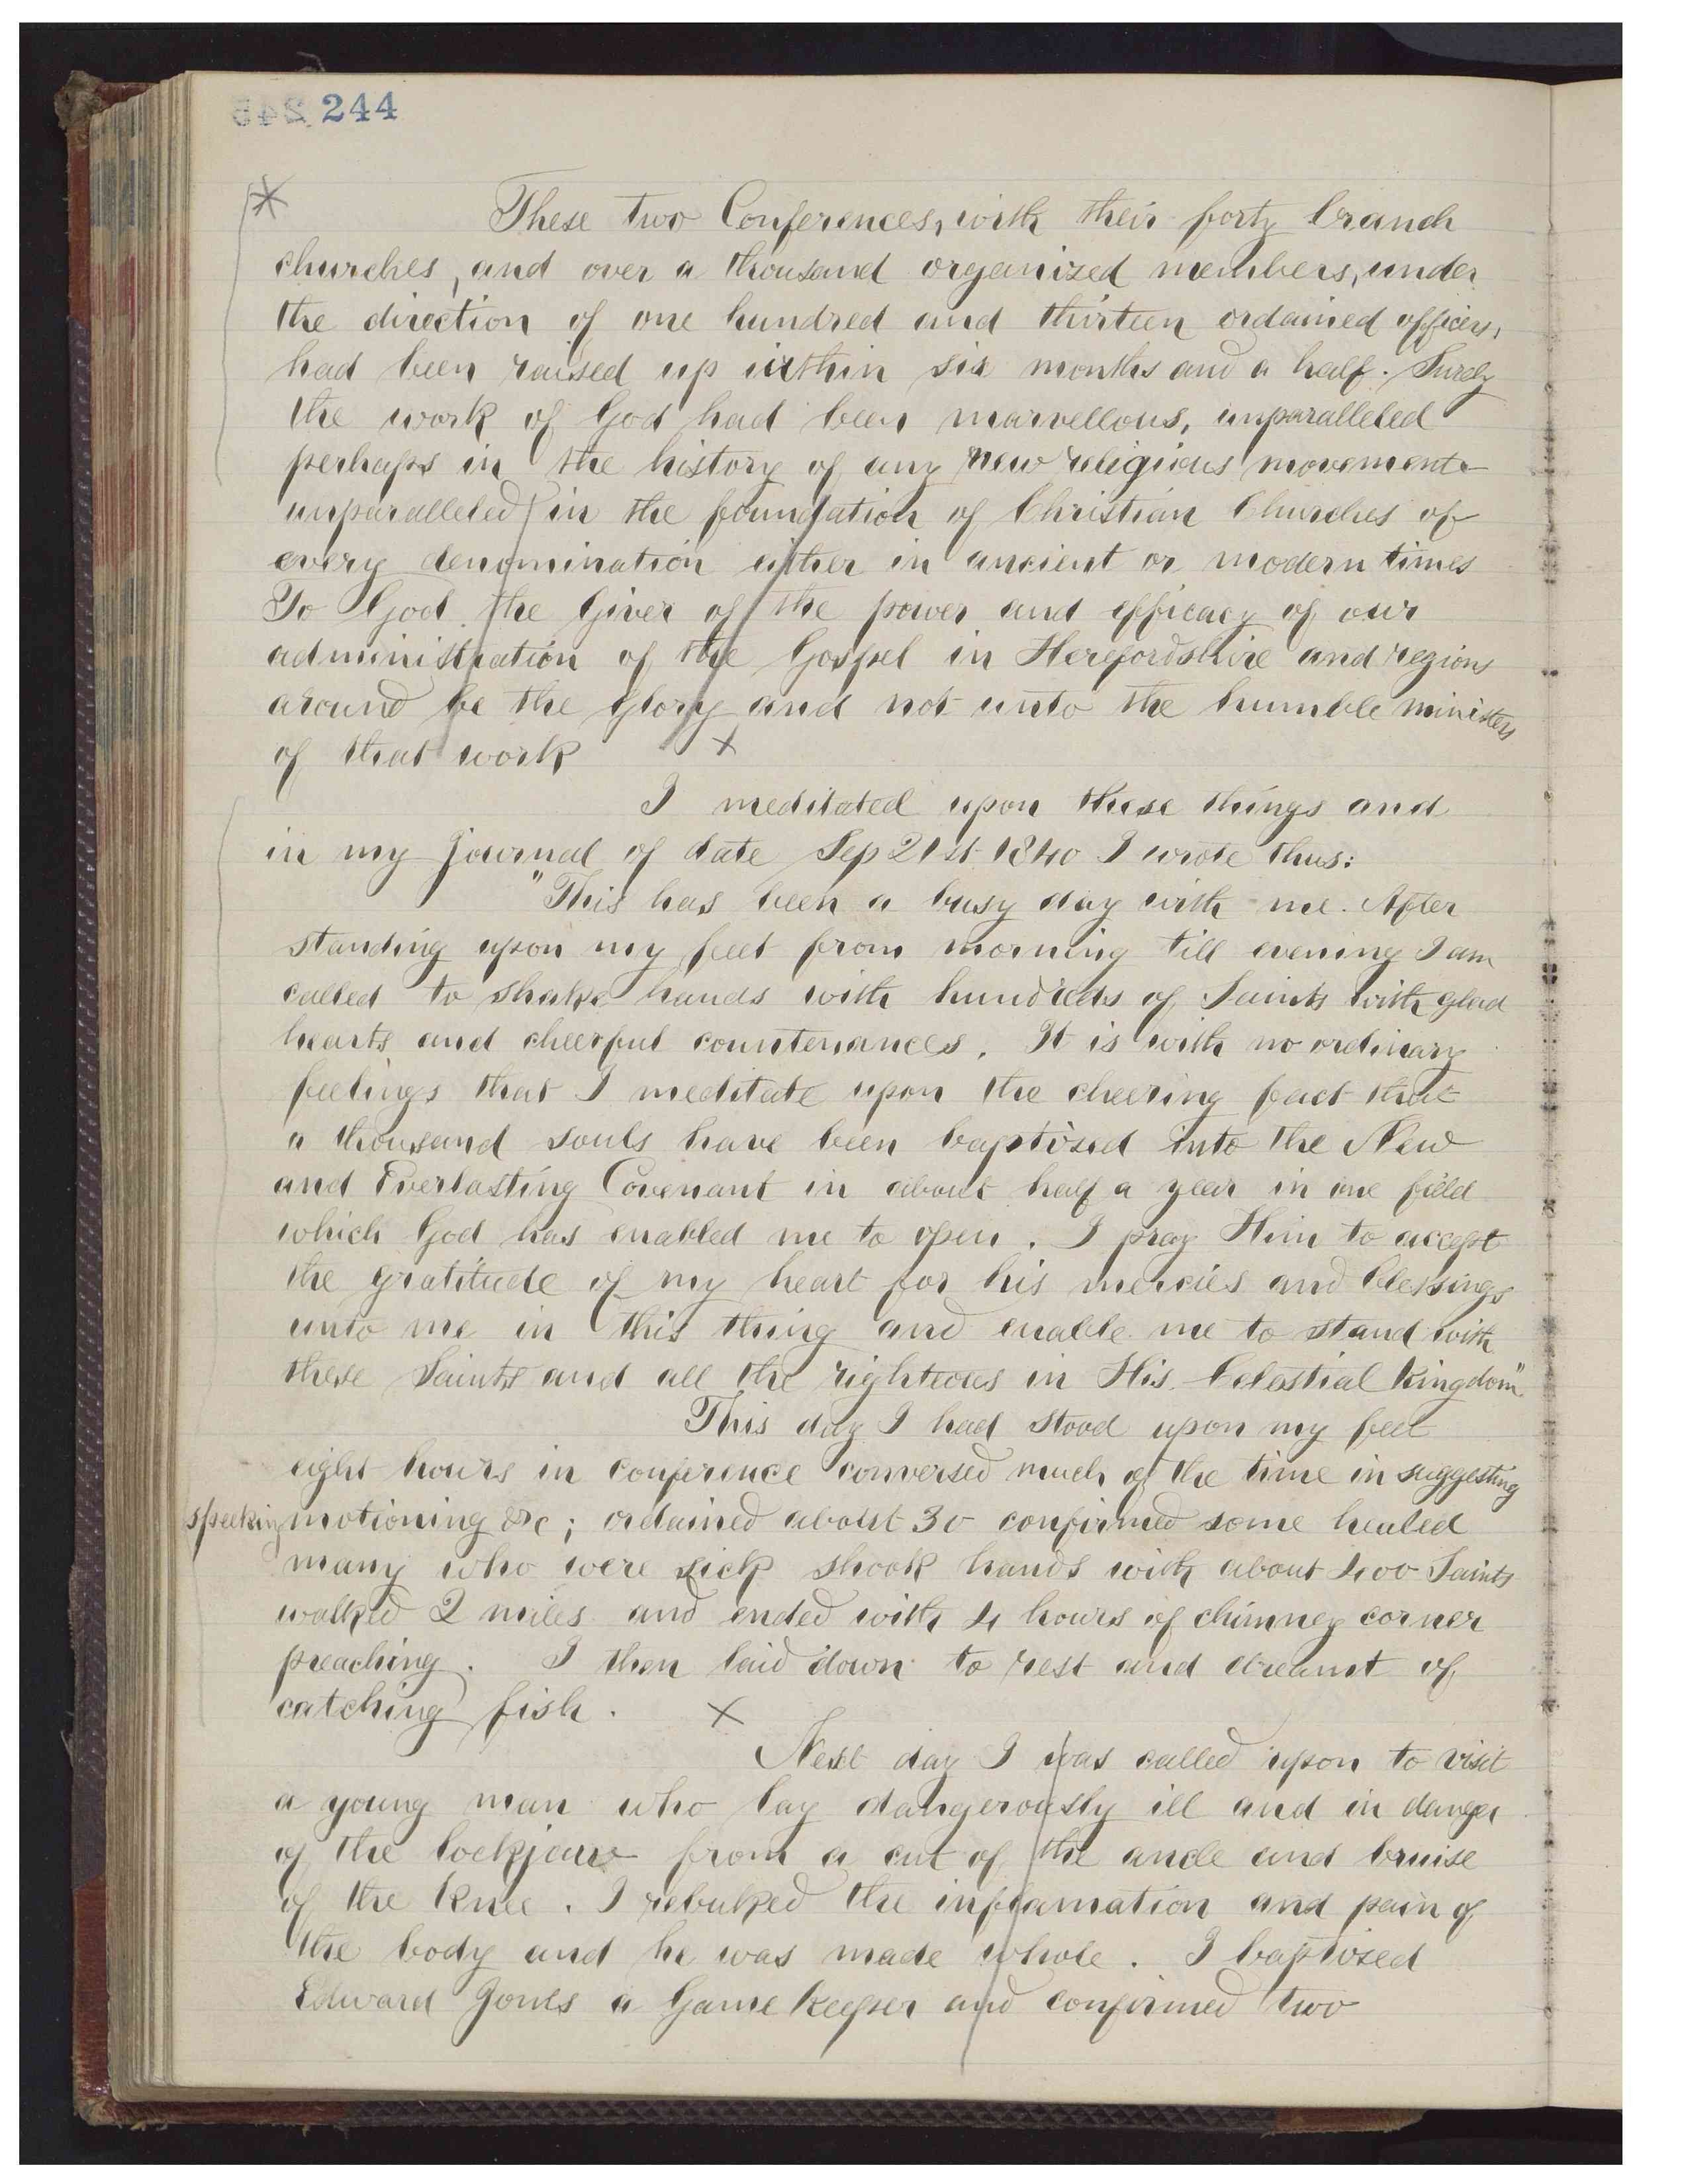 244
*
These two Conferences, with their forty branch
churches, and over a thousand organized members, under
the direction of one hundred and thirteen ordained officers,
had been raised up within six months and a half. Surely
the work of God had been marvellous, unparalleled
perhaps in the history of any new religious movement
unparalleled in the foundation of Christian Churches of
every denomination either in ancient or modern times
To God the Giver of the power and efficacy of our
administration of the Gospel in Herefordshire and regions
around be the glory and not unto the humble ministers
of that work X
I meditated upon these things and
in my journal of date Sep 21st 1840 I wrote thus:
"This has been a busy day with me. After
standing upon my feet from morning till evening I am
called to shake hands with hundreds of Saints with glad
hearts and cheerful countenances. It is with no ordinary
feelings that I meditate upon the cheering fact that
a thousand souls have been baptized into the New
and Everlasting Covenant in about half a year in one field
which God has enabled me to open. I pray Him to accept
the gratitude of my heart for his mercies and blessings
unto me in this thing and enable me to stand with
these Saints and all the righteous in His Celestial Kingdom"
This day I had stood upon my feet
eight hours in conference conversed much of the time in suggesting
speeking motioning &c; ordained about 30 confirmed some healed
many who were sick shook hands with about 400 Saints
walked 2 miles and ended with 4 hours of chimney corner
preaching. I then laid down to rest and dreamt of
catching fish. X
Next day I was called upon to visit
a young man who lay dangerously ill and in danger
of the lockjaw from a cut of the ancle and bruise
of the knee. I rebuked the inflamation and pain of
the body and he was made whole. I baptized
Edward Jones a Game keeper and confirmed two